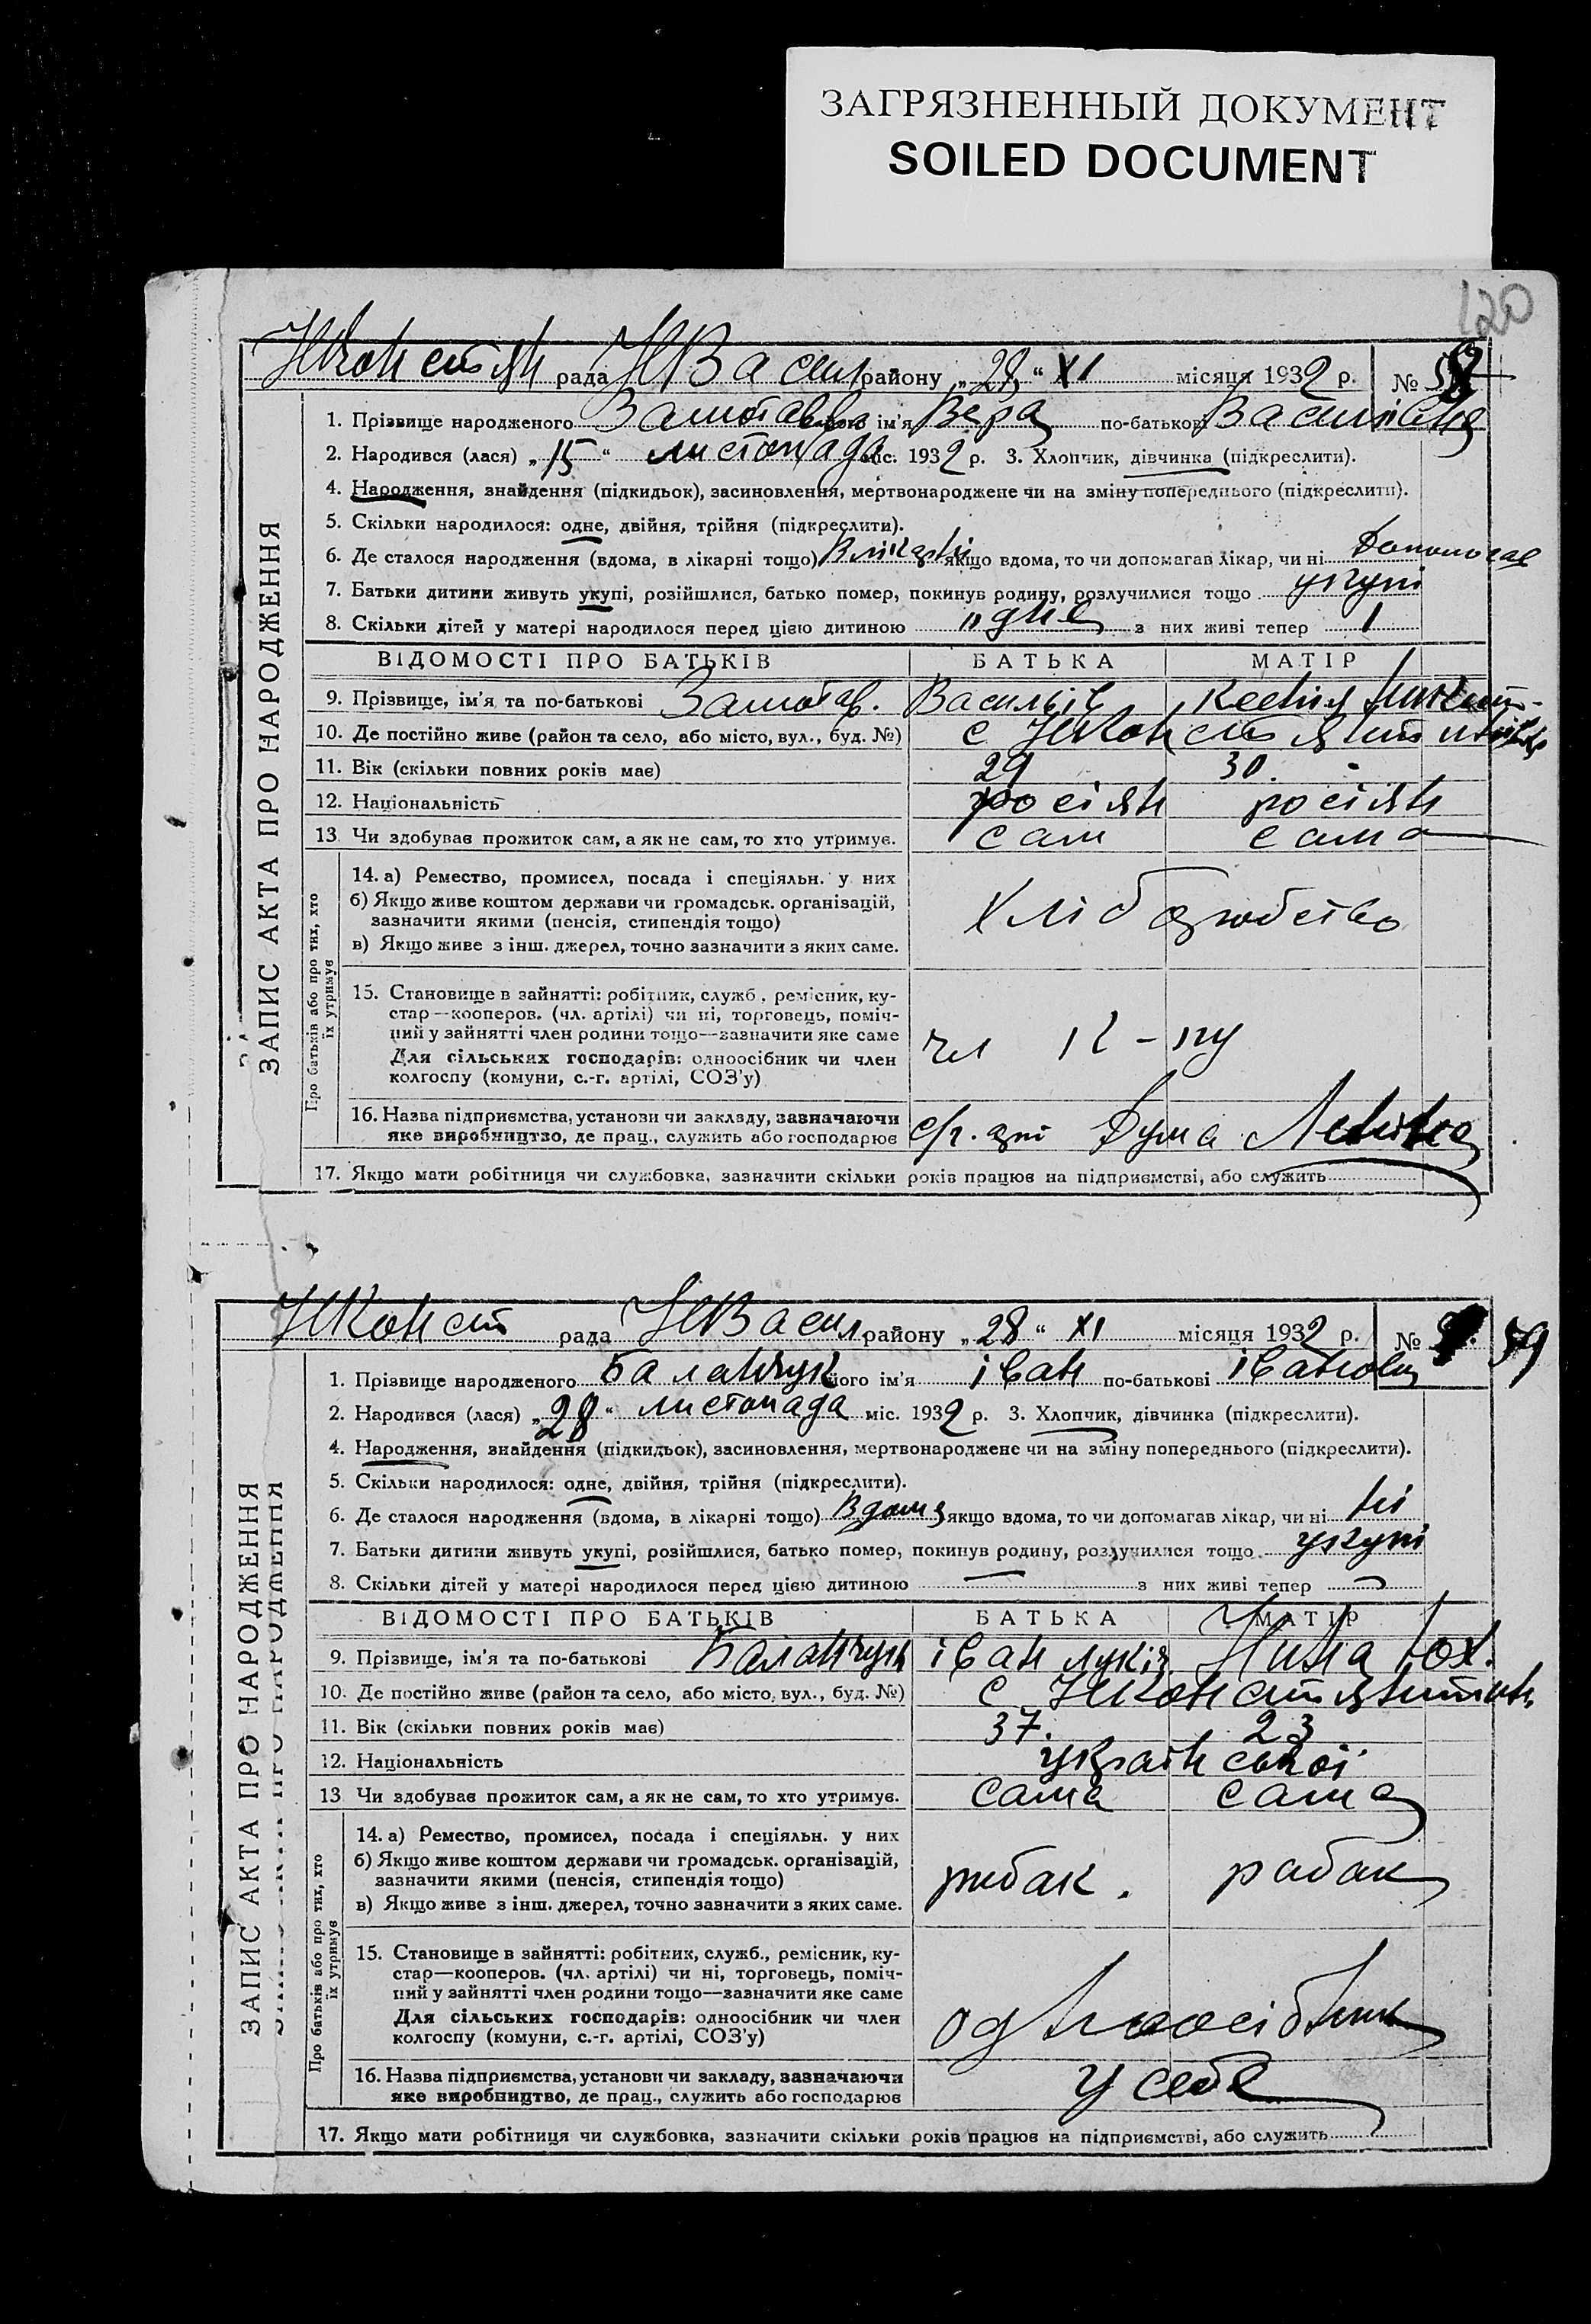 ЗАГРЯЗНЕННЫЙ ДОКУМЕНТ
SOILED DOCUMENT
120
НКонстян рада НВасил району „28“ XI місяця 1932 р. №
1. Прізвище народженого ім'я Вера по-батькові
2. Народився (лася) „15“ листопада міс. 1932 р. 3. Хлопчик, дівчинка (підкреслити).
4. Народження, знайдення (підкидьок), засиновлення, мертвонароджене чи на зміну попереднього (підкреслити).
5. Скільки народилося: одне, двійня, трійня (підкреслити).
6. Де сталося народження (вдома, в лікарні тощо) якщо вдома, то чи допомагав лікар, чи ні Допомогав
7. Батьки дитини живуть укупі, розійшлися, батько помер, покинув родину, розлучилися тощо укупі
8. Скільки дітей у матері народилося перед цією дитиною одне з них живі тепер 1
ВІДОМОСТІ ПРО БАТЬКІВ БАТЬКА МАТІР
9. Прізвище, ім'я та по-батькові
10. Де постійно живе (район та село, або місто, вул., буд. №) с
11. Вік (скільки повних років має) 29 30.
12. Національність росіян росіян
13. Чи здобував прожиток сам, а як не сам, то хто утримує. сам сама
14. а) Ремество, промисел, посада і спеціяльн. у них
б) Якщо живе коштом держави чи громадськ. організацій,
зазначити якими (пенсія, стипендія тощо)
в) Якщо живе з інш. джерел, точно зазначити з яких саме.
Хліборобство
15. Становище в зайнятті: робітник, служб., ремісник, ку-
стар—кооперов. (чл. артілі) чи ні, торговець, поміч-
ний у зайнятті член родини тощо—зазначити яке саме
Для сільських господарів: одноосібник чи член
колгоспу (комуни, с.-г. артілі, СОЗ'у)
чл к-пу
16. Назва підприємства, установи чи закладу, зазначаючи
яке виробництво, де прац., служить або господарює
Дума Леніна
17. Якщо мати робітниця чи службовка, зазначити скільки років працює на підприємстві, або служить
ЗАПИС АКТА ПРО НАРОДЖЕННЯ
Про батьків або про тих, хто
їх утримує
НКонст рада НВасил району „28“ XI місяця 1932 р. № 59
1. Прізвище народженого Баланчук його ім'я іван по-батькові іванович
2. Народився (лася) „28“ листопада міс. 1932 р. 3. Хлопчик, дівчинка (підкреслити).
4. Народження, знайдення (підкидьок), засиновлення, мертвонароджене чи на зміну попереднього (підкреслити).
5. Скільки народилося: одне, двійня, трійня (підкреслити).
6. Де сталося народження (вдома, в лікарні тощо) Вдома якщо вдома, то чи допомагав лікар, чи ні ні
7. Батьки дитини живуть укупі, розійшлися, батько помер, покинув родину, розлучилися тощо укупі
8. Скільки дітей у матері народилося перед цією дитиною — з них живі тепер —
ВІДОМОСТІ ПРО БАТЬКІВ БАТЬКА МАТІР
9. Прізвище, ім'я та по-батькові Баланчук іван Нина
10. Де постійно живе (район та село, або місто, вул., буд. №) с
11. Вік (скільки повних років має) 37. 23
12. Національність української
13. Чи здобував прожиток сам, а як не сам, то хто утримує. сама сама
14. а) Ремество, промисел, посада і спеціяльн. у них
б) Якщо живе коштом держави чи громадськ. організацій,
зазначити якими (пенсія, стипендія тощо)
в) Якщо живе з інш. джерел, точно зазначити з яких саме.
рибак. рабак
15. Становище в зайнятті: робітник, служб., ремісник, ку-
стар—кооперов. (чл. артілі) чи ні, торговець, поміч-
ний у зайнятті член родини тощо—зазначити яке саме
Для сільських господарів: одноосібник чи член
колгоспу (комуни, с.-г. артілі, СОЗ'у)
одноосібник
16. Назва підприємства, установи чи закладу, зазначаючи
яке виробництво, де прац., служить або господарює
у себе
17. Якщо мати робітниця чи службовка, зазначити скільки років працює на підприємстві, або служить
ЗАПИС АКТА ПРО НАРОДЖЕННЯ
Про батьків або про тих, хто
їх утримує